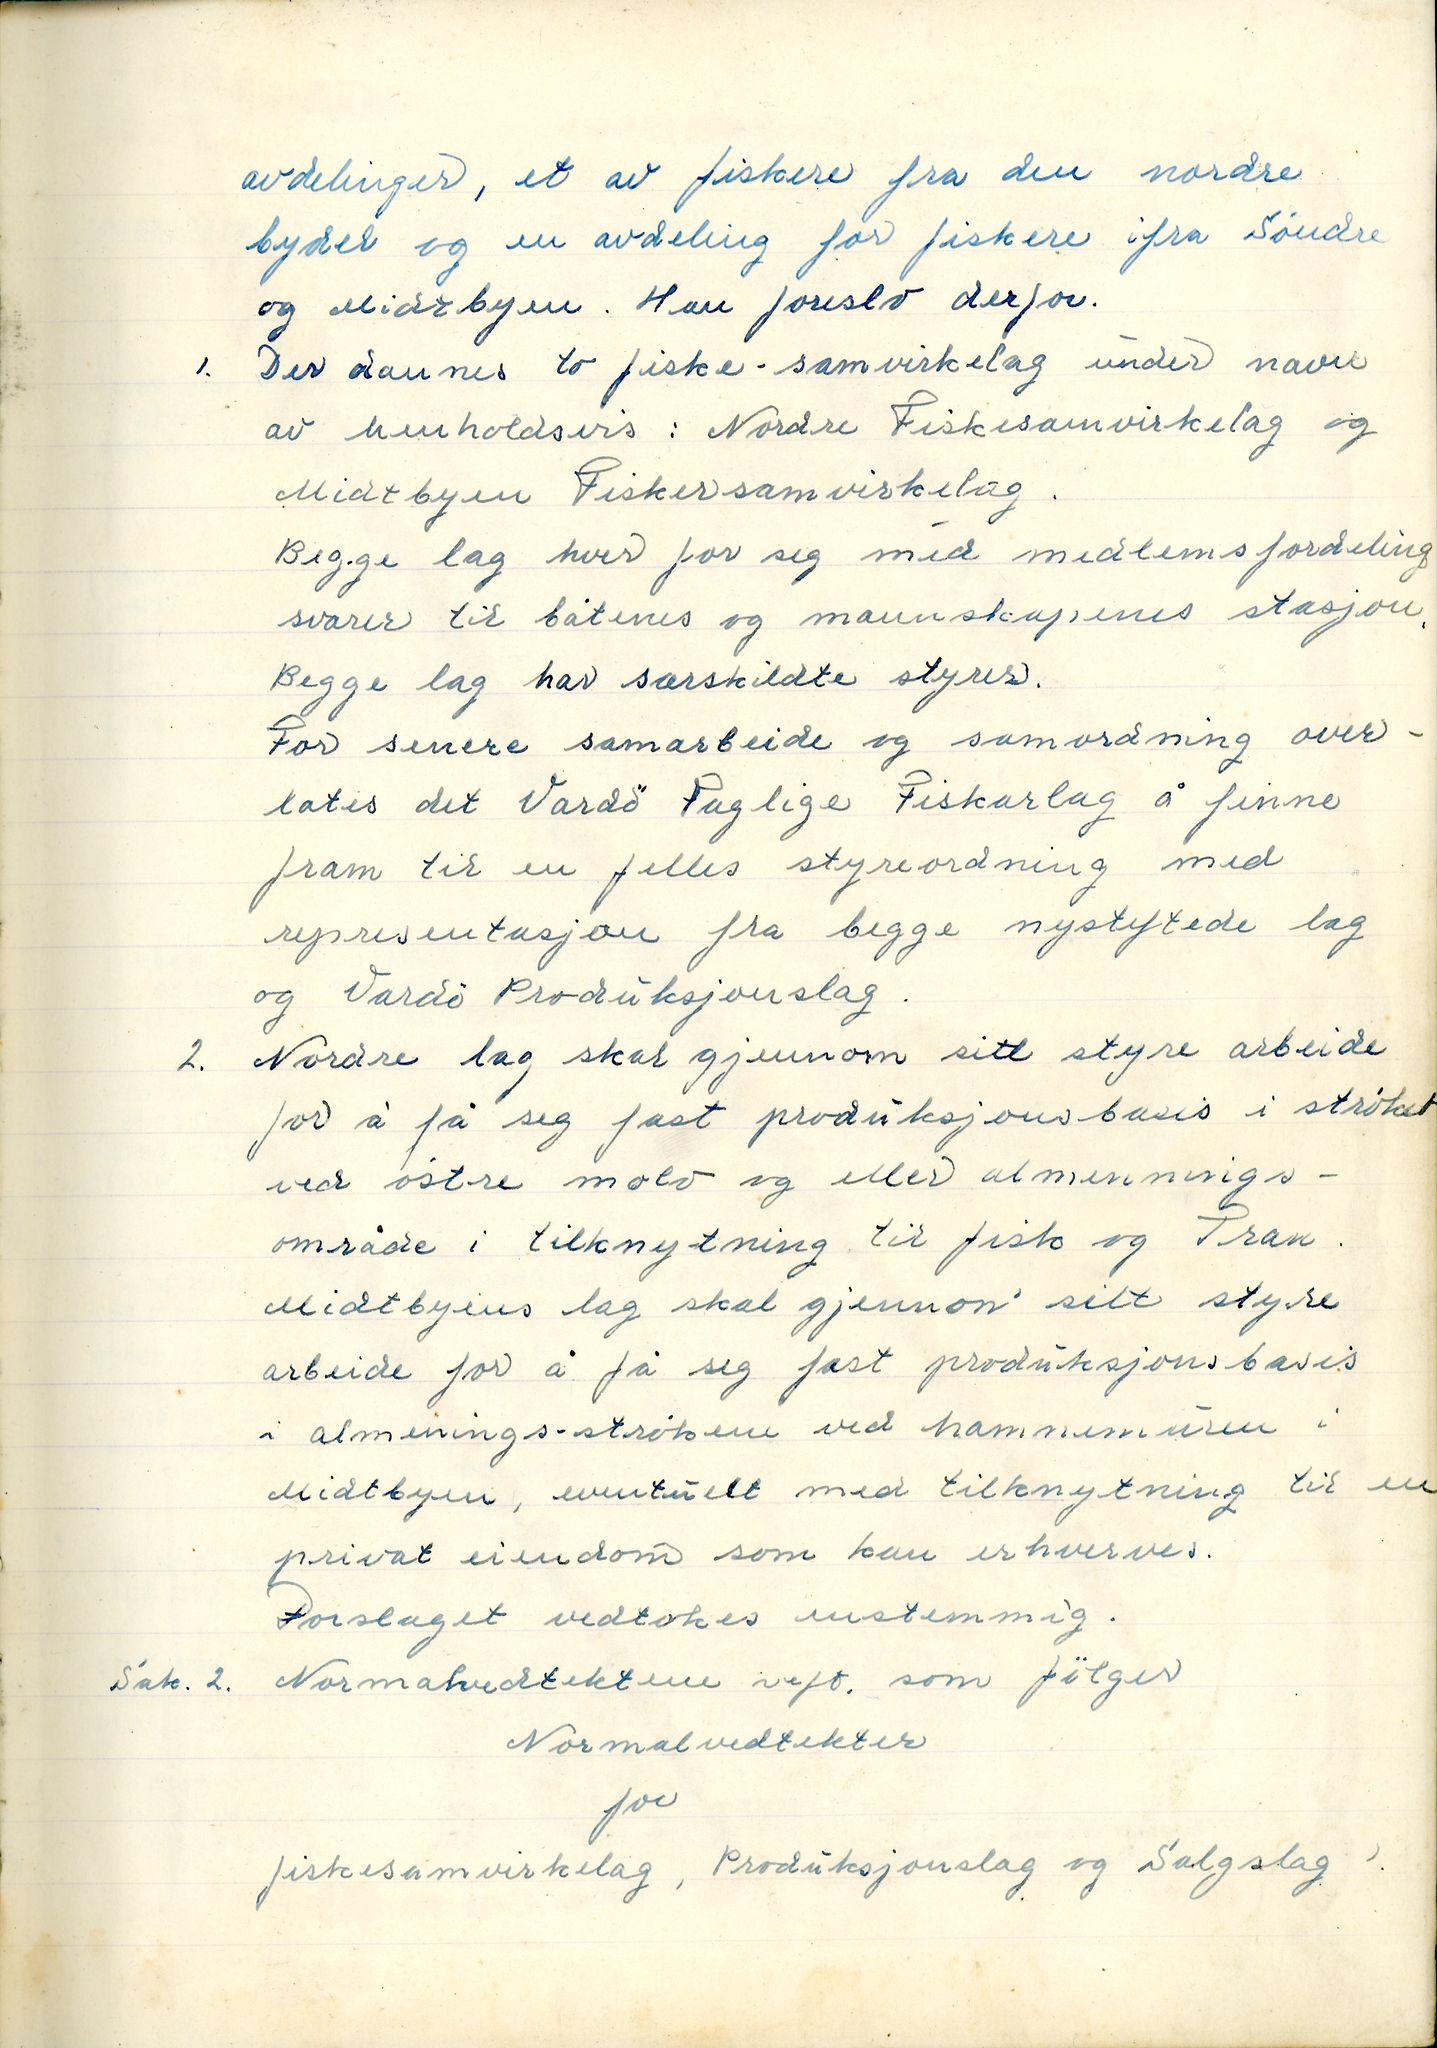 avdelinger, et av fiskere fra den nordre
bydel og en avdeling for fiskere ifra Söndre
og Midtbyen. Han foreslo derfor.
1. Der dannes to fiske-samvirkelag under navn
av henholdsvis: Nordre Fiskesamvirkelag og
Midtbyen Fiskersamvirkelag.
Begge lag hver for seg med medlemsfordeling
svarer til båtenes og mannskapenes stasjon.
Begge lag har særskildte styrer.
For senere samarbeide og samordning over-
lates det Vardö Faglige Fiskarlag å finne
fram til en felles styreordning med
representasjon fra begge nystyftede lag
og Vardö Produksjonslag.
2. Nordre lag skal gjennom sitt styre arbeide
for å få seg fast produksjonsbasis i ströket
ved östre molo og eller almennings-
område i tilknytning til fisk og Tran.
Midtbyens lag skal gjennom sitt styre
arbeide for å få seg fast produksjonsbasis
i almenings-strökene ved hamnemuren i
Midtbyen, eventuelt med tilknytning til en
privat eiendom som kan erhverves.
Forslaget vedtokes enstemmig.
Sak. 2. Normalvedtektene som fölger
Normalvedtekter
for
fiskesamvirkelag, Produksjonslag og Salgslag